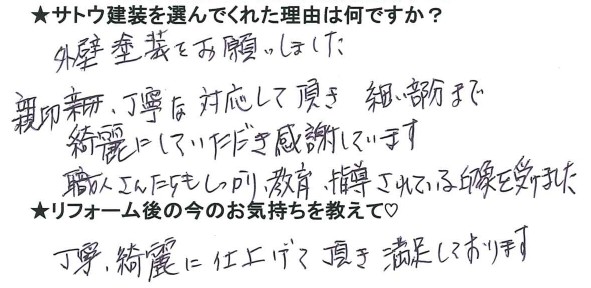 ★サトウ建装を選んでくれた理由は何ですか？
外壁塗装をお願いしました
親切、丁寧な対応して頂き 細い部分まで
綺麗にしていただき感謝しています
職人さんたちもしっかり、教育、指導されている印象を受けました
★リフォーム後の今のお気持ちを教えて♡
丁寧、綺麗に仕上げて頂き満足しております